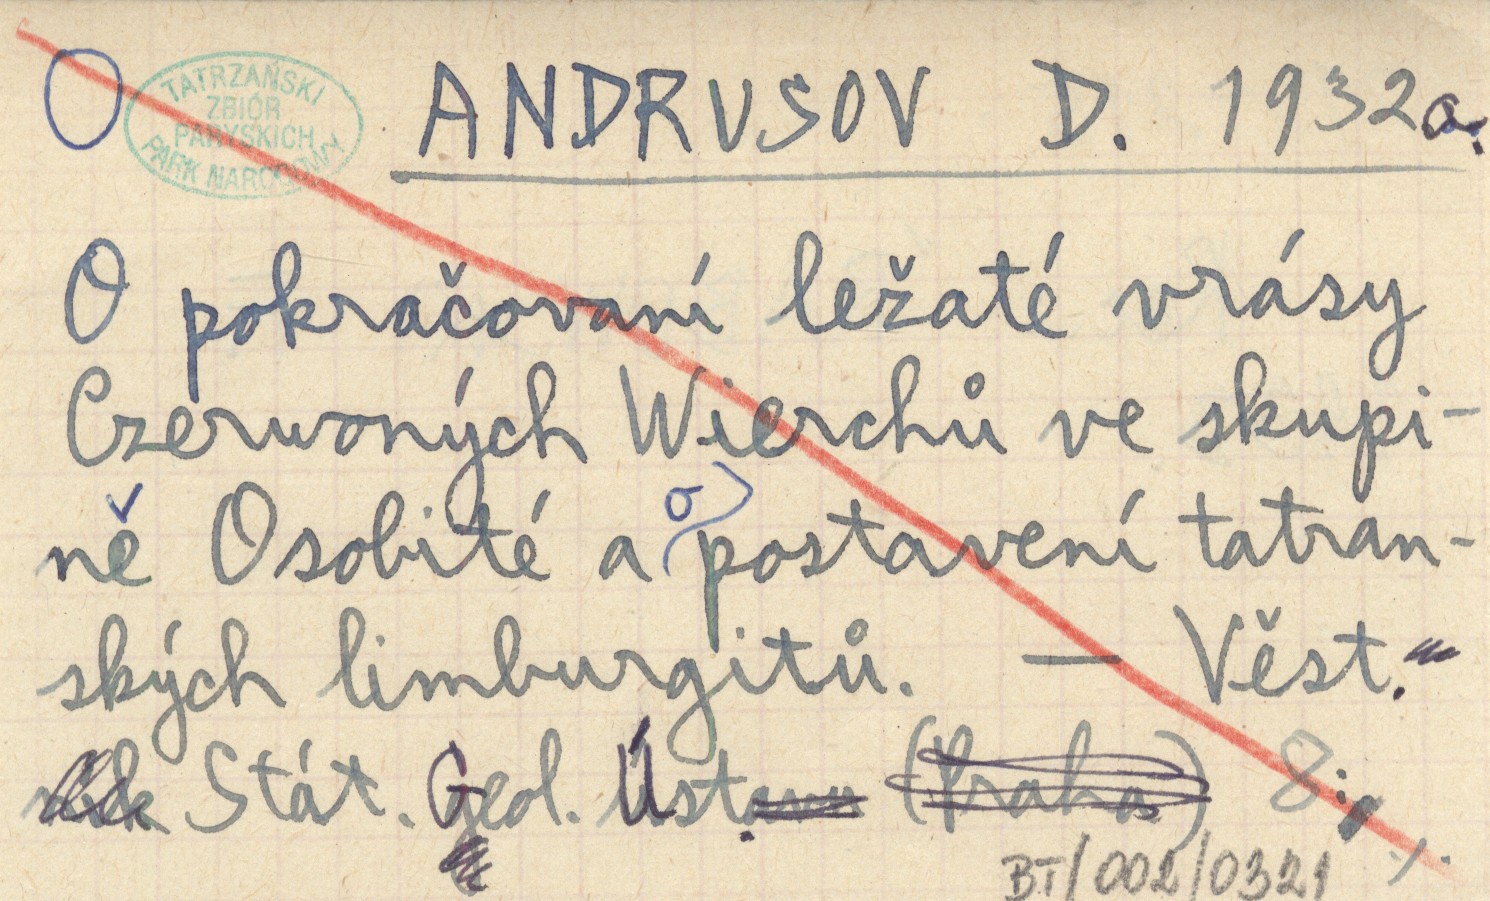 O TATRZAŃSKI ZBIÓR PARYSKICH PARK NARODOWY
ANDRUSOV D. 1932a.
O pokračovaní ležaté vrásy
Czerwoných Wierchů ve skupi-
ně Osobité a o postavení tatran-
ských limburgitů. — Věst.
Stát. Geol. Úst. (Praha) 8;
BT/002/0321